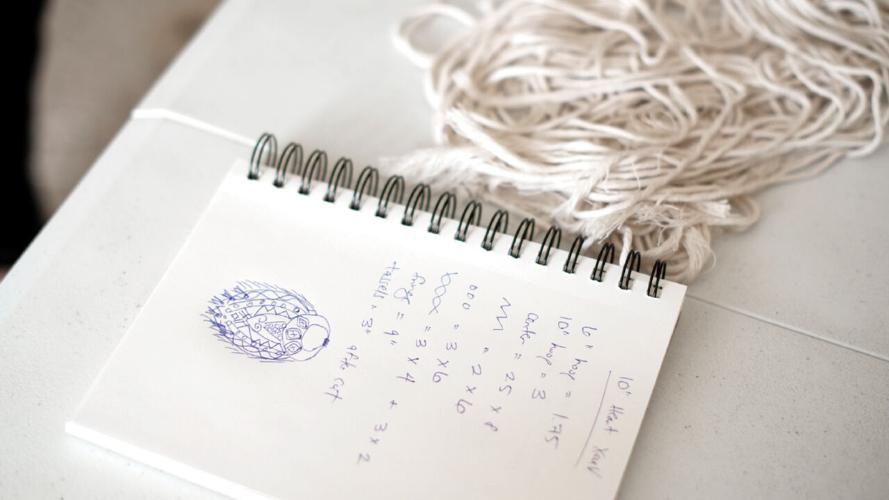 10" Heart
6" hoop = 1.75
10" hoop = 3
Center = 25 x 8
= 2 x 6
000 = 3 x 6
xxxx = 3 x 4 + 3 x 2
fringe = 9"
tassels = 3" after cut